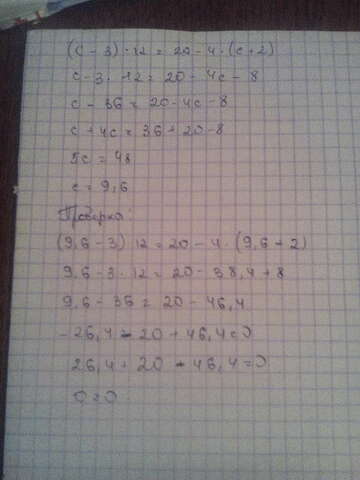 (c - 3) · 12 = 20 - 4 · (c + 2)
c - 3 · 12 = 20 - 4c - 8
c - 36 = 20 - 4c - 8
c + 4c = 36 + 20 - 8
5c = 48
c = 9,6
Проверка:
(9,6 - 3) 12 = 20 - 4 · (9,6 + 2)
9,6 - 3 · 12 = 20 - 38,4 + 8
9,6 - 36 = 20 - 46,4
- 26,4 - 20 + 46,4 = 0
26,4 + 20 - 46,4 = 0
0 = 0